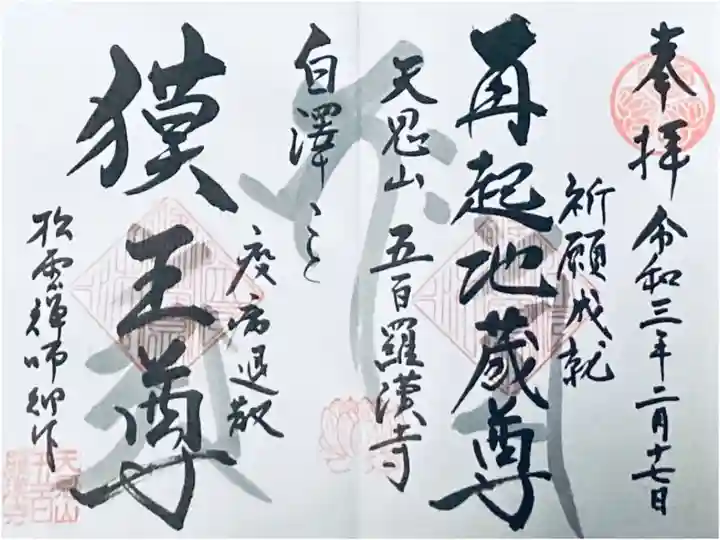 奉拝 令和三年二月十七日
祈願成就
再起地蔵尊
天恩山 五百羅漢寺
白澤こと
獏王尊
疫病退散
松雲禅師御作
天恩山五百羅漢寺